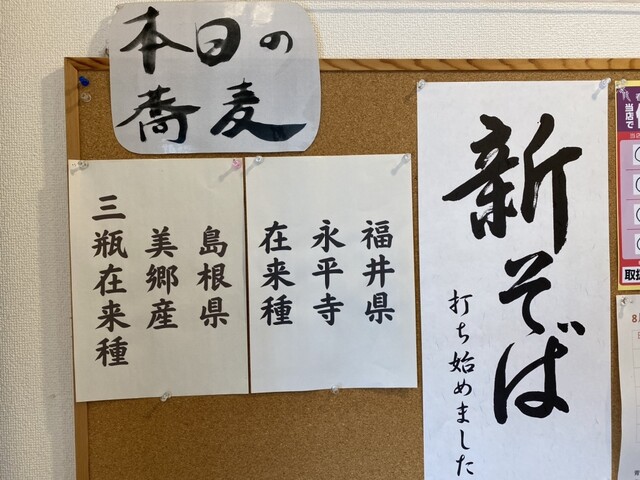 本日の
蕎麦
新そば
打ち始めました
福井県
永平寺
在来種
島根県
美郷産
三瓶在来種
当店で
取扱
8月